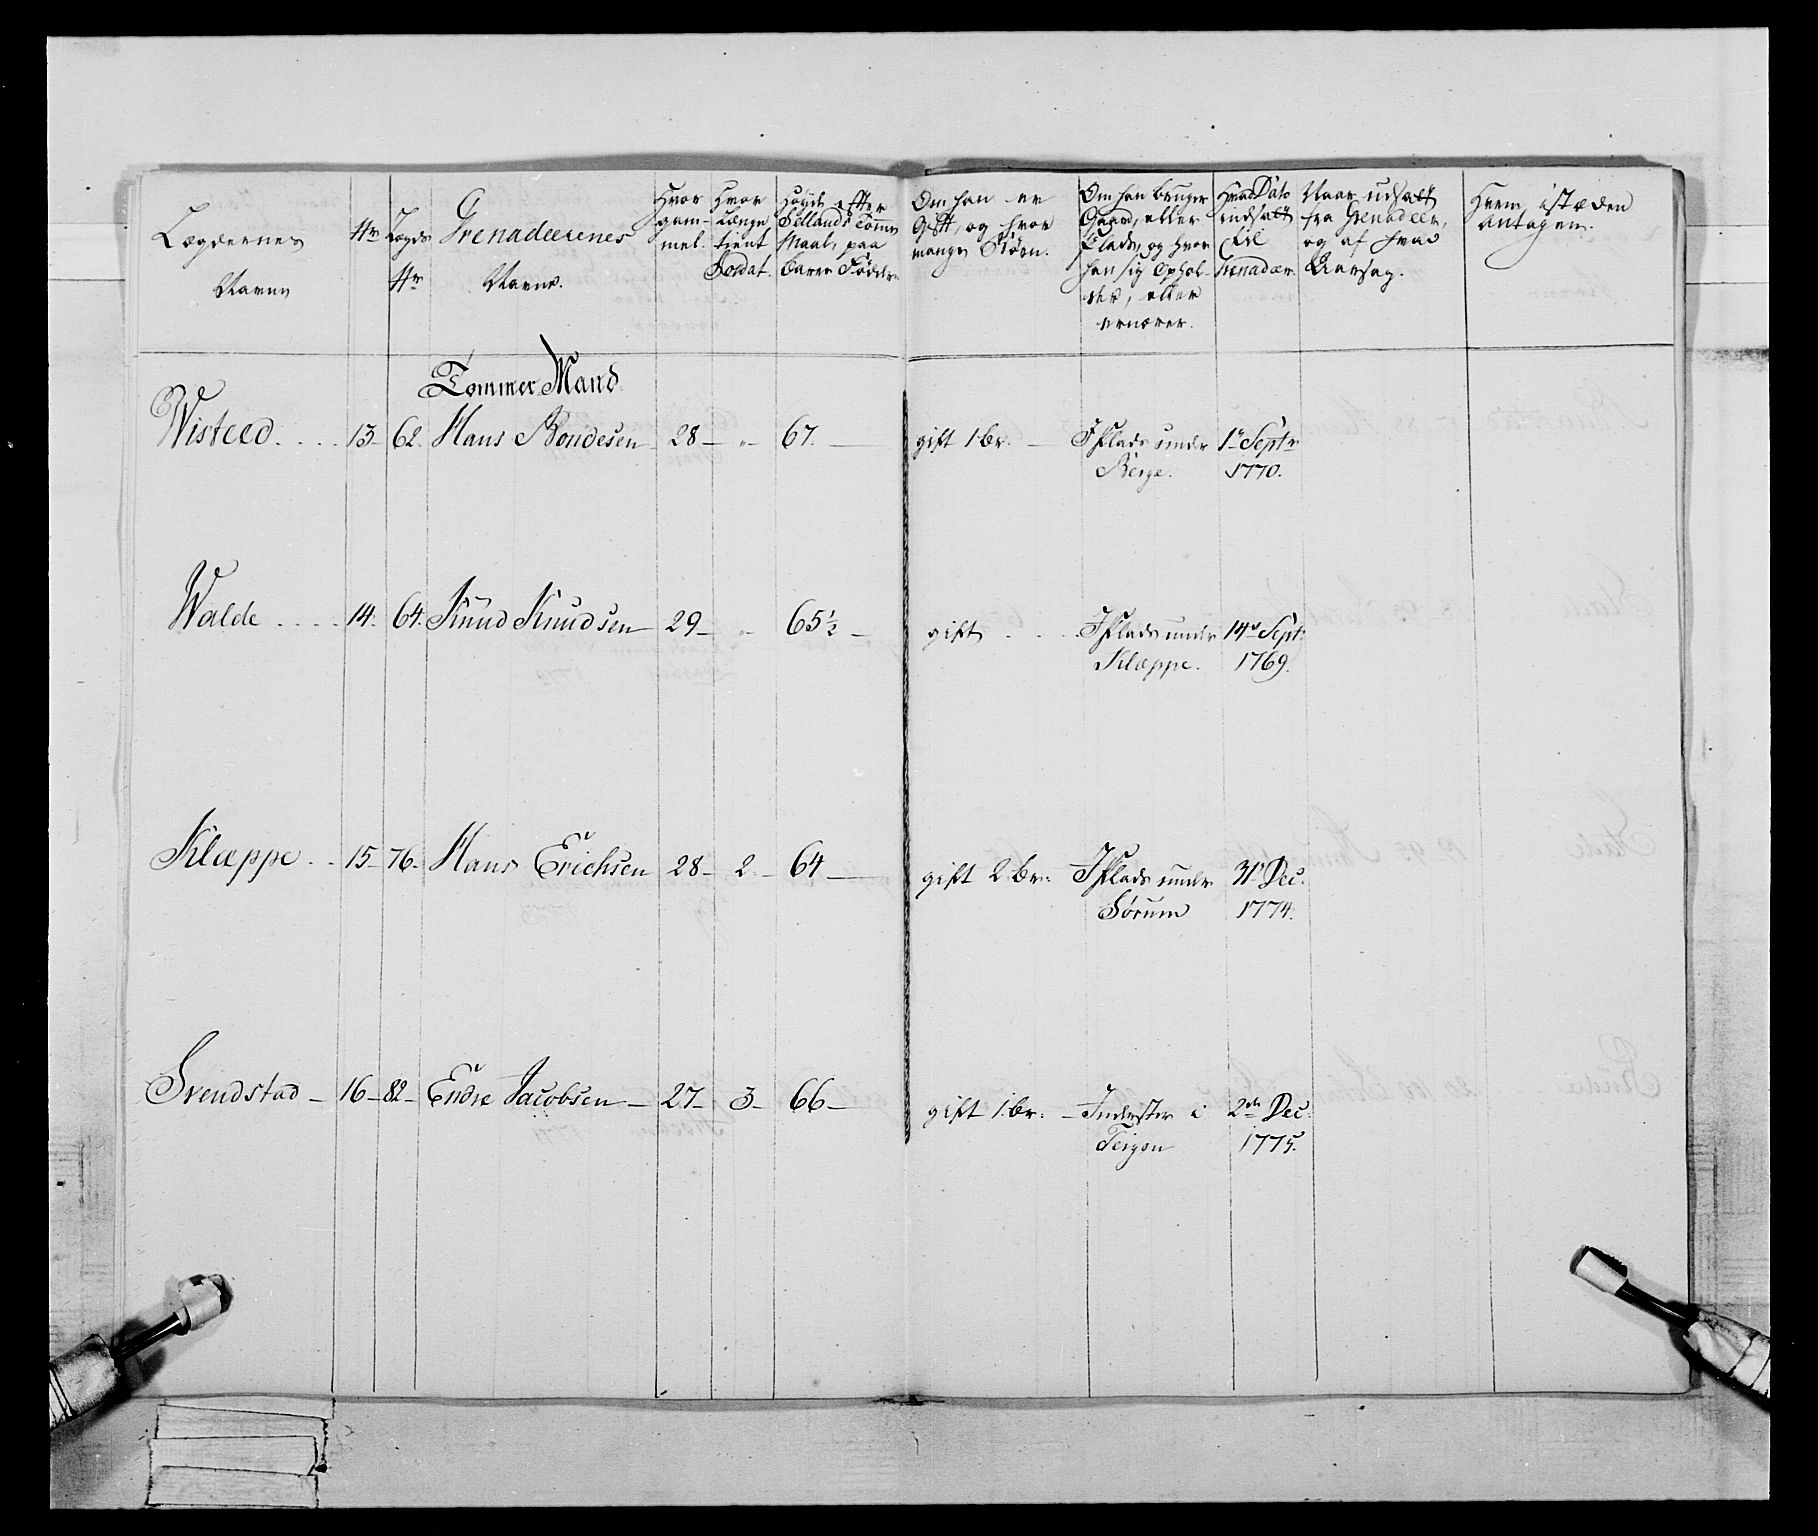 Lægdernes Navne
Nr
Lægds Nr
Grenadeerenes Navne.
Hvor gammel.
Hvor Længe tient Soldat.
Høyde efter Sellands Tomme Maal, paa barer Fødder
Om han er Gift, og hvor mange Börn.
Om han bruger Gaard, eller Plads, og hvor han sig ophol- der, eller ernærer.
Hvad Dato indsatt til Grenadeer.
Naar udsatt fra Grenadeer, og af hvad Aarsag.
Hvem istæden antagen.
Tømmer Mand
Wisteed .... 13 62. Hans Bondesen 28 – „ – 67. – gift 1 br. – I Plads under Berge. 1e Septr 1770.
Walde .... 14. 64. Knud Knudsen 29 – „ – 65½ – gift . . . I Plads under Klæppe. 14de Septr 1769.
Klæppe . . 15 – 76. Hans Erichsen 28 – 2. – 64 – gift 2 br. I Plads under Sørum 31te Dec. 1774.
Svendstad – 16 – 82 – Endre Jacobsen – 27 – 3 – 66 – gift 1 br. – Inderster i Teigen 2de Dec. 1775.